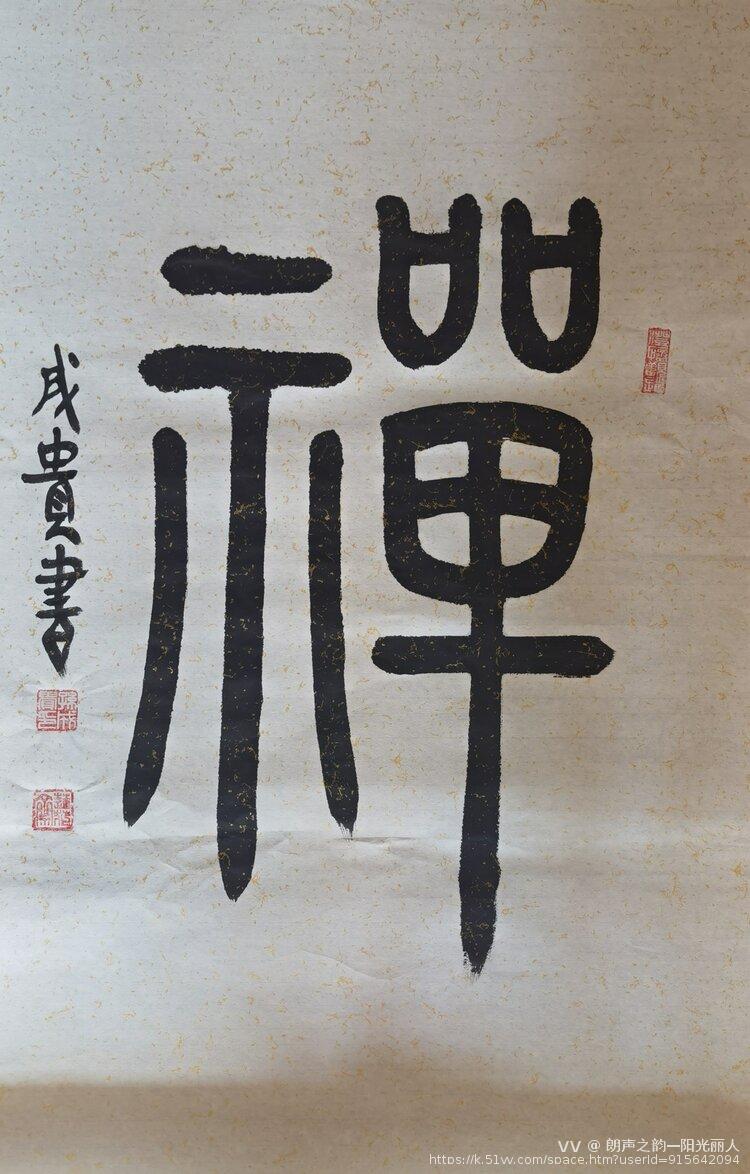 禪
成貴書
VV @ 朗声之韵—阳光丽人
https://k.51vv.com/space.htm?userId=915642094